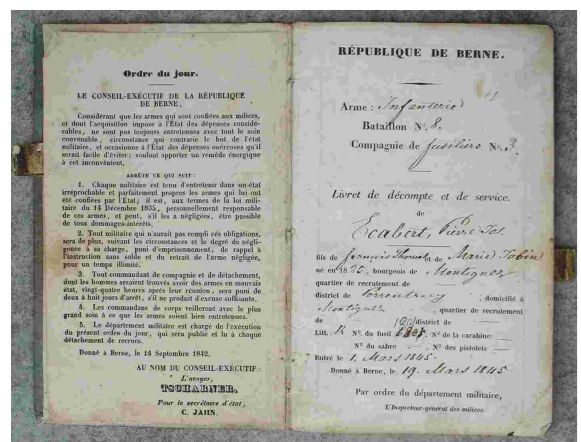 Ordre du jour.
LE CONSEIL-EXÉCUTIF DE LA RÉPUBLIQUE
DE BERNE,
Considérant que les armes qui sont confiées aux milices,
et dont l'acquisition impose à l'État des dépenses considé-
rables, ne sont pas toujours entretenues avec tout le soin
convenable, circonstance qui contrarie le but de l'état
militaire, et occasionne à l'État des dépenses onéreuses qu'il
serait facile d'éviter; voulant apporter un remède énergique
à cet inconvénient,
ARRÊTE CE QUI SUIT:
1. Chaque militaire est tenu d'entretenir dans un état
irréprochable et parfaitement propres les armes qui lui ont
été confiées par l'État; il est, aux termes de la loi mili-
taire du 14 Décembre 1835, personnellement responsable
de ces armes, et peut, s'il les a négligées, être passible
de tous dommages-intérêts.
2. Tout militaire qui n'aurait pas rempli ces obligations,
sera de plus, suivant les circonstances et le degré de négli-
gence à sa charge, puni d'emprisonnement, de rappel à
l'instruction sans solde et du retrait de l'arme négligée,
pour un temps illimité.
3. Tout commandant de compagnie et de détachement,
dont les hommes seraient trouvés avoir des armes en mauvais
état, vingt-quatre heures après leur réunion, sera puni de
deux à huit jours d'arrêt, s'il ne produit d'excuse suffisante.
4. Les commandans de corps veilleront avec le plus
grand soin à ce que les armes soient bien entretenues.
5. Le département militaire est chargé de l'exécution
du présent ordre du jour, qui sera publié et lu à chaque
détachement de recrues.
Donné à Berne, le 14 Septembre 1842.
AU NOM DU CONSEIL-EXÉCUTIF:
L'avoyer,
TSCHARNER.
Pour le secrétaire d'état,
C. JAHN.
RÉPUBLIQUE DE BERNE.
Arme: Infanterie
Bataillon N°. 8.
Compagnie de fusiliers N°. 3.
Livret de décompte et de service.
de
Ecabert, Pierre Jos.
fils de françois Thomas, de Marie
né en 18 bourgeois de Montignez
quartier de recrutement de
district de Porrentruy; domicilié à
Montignez, quartier de recrutement
de district de
Litt. R N°. du fusil N°. de la carabine
N°. du sabre N°. des pistolets
Entré le 1. Mars 1845.
Donné à Berne, le 19. Mars 1845
Par ordre du département militaire,
L'Inspecteur-général des milices.